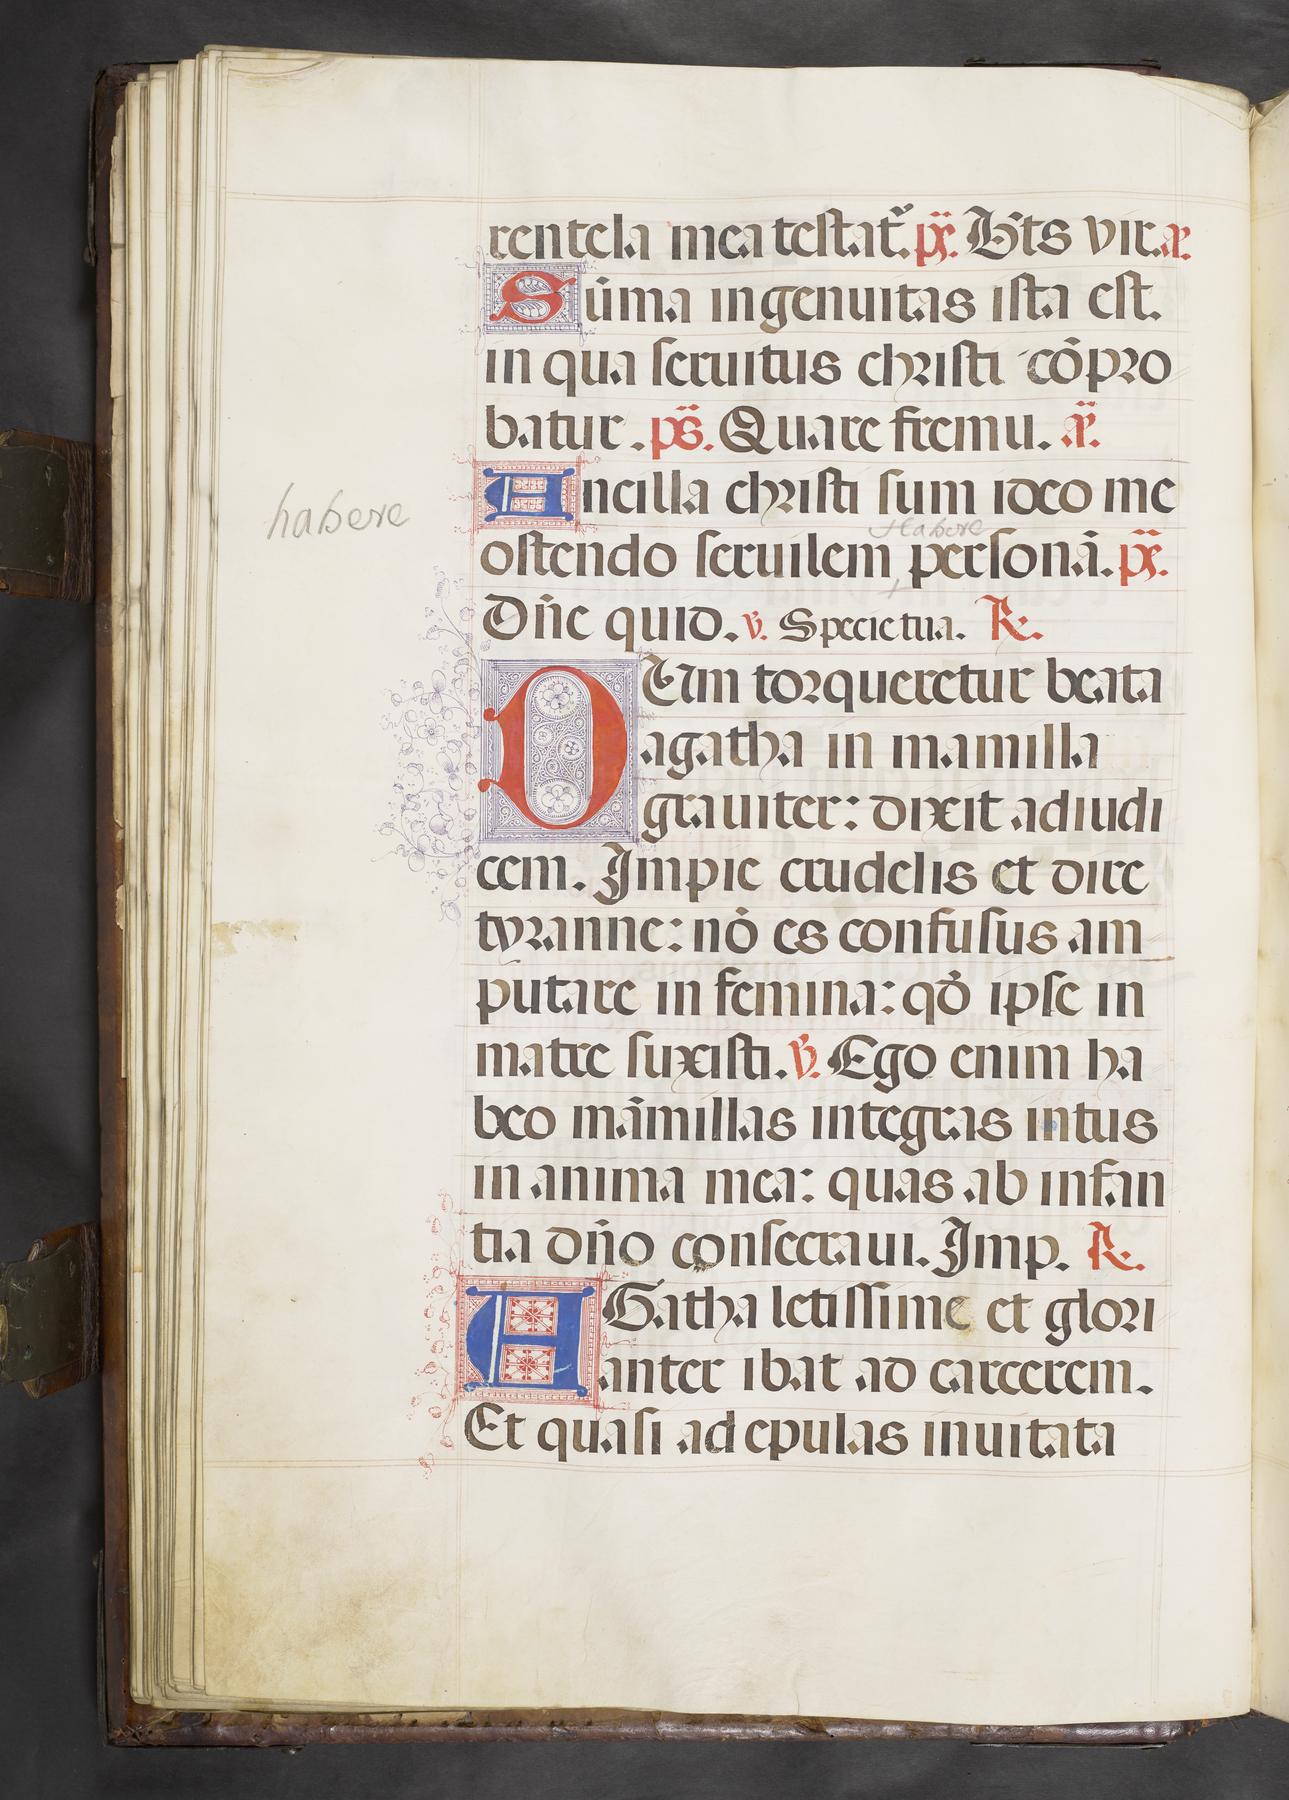 rentela mea testat᷑. ps̈. Bt̄s vir. a̅.
Sūma ingenuitas ista est.
in qua seruitus christi cōpro
batur. ps̈. Quare fremu. a̅.
Ancilla christi sum ideo me
Habere
habere
ostendo seruilem personā. ps̈.
Dn̄e quid. v̄. Specie tua. R.
DUm torqueretur beata
agatha in mamilla
grauiter: dixit ad iudi
cem. Impie crudelis et dire
tyranne: nō es confusus am
putare in femina: qđ ipse in
matre suxisti. v̄. Ego enim ha
beo māmillas integras intus
in anima mea: quas ab infan
tia dn̄o consecraui. Imp. R.
AGatha letissime et glori
anter ibat ad carcerem.
Et quasi ad epulas inuitata